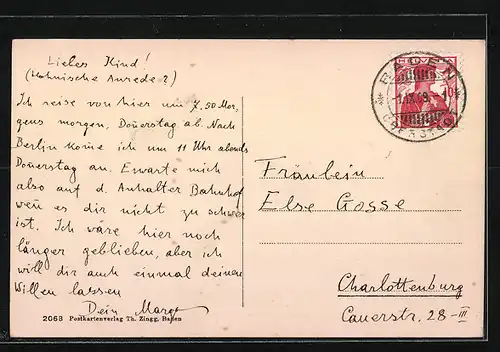 Liebes Kind!
(Höhnische Anrede?)
Ich reise von hier um 7.50 Mor-
gens morgen, Donerstag ab. Nach
Berlin kome ich um 11 Uhr abends
Donerstag an. Erwarte mich
also auf d. Anhalter Bahnhof
wen es dir nicht zu schwer
ist. Ich wäre hier noch
länger geblieben, aber ich
will dir auch einmal deinen
Willen lassen
Dein
2063 Postkartenverlag Th. Zingg, Baden
BADEN
HELVETIA
Fräulein
Else Gosse
Charlottenburg
Cauerstr. 28-III